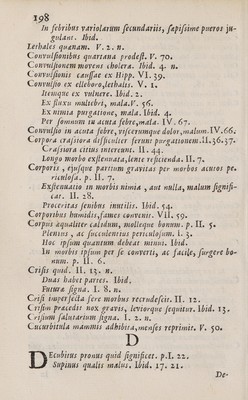 198
In febribus variolarum secundariis, sæpissime pueros ju-
gulant. Ibid.
Lethales quænam. V. 2. n.
Convulsionibus quartana prodest. V. 70.
Convulsionem movens cholera. Ibid. 4. n.
Convulsionis caussæ ex Hipp. VI. 39.
Convulsio ex elleboro, lethalis. V. 1.
Itemque ex vulnere. Ibid. 2.
Ex fluxu muliebri, mala. V. 56.
Ex nimia purgatione, mala. Ibid. 4.
Per somnum in acuta febre, male. IV. 67.
Convulsio in acuta febre, viscerumque dolor, malum. IV. 66.
Corpora crassiora difficulter ferunt purgationem. II. 36. 37.
Crassiora citius intereunt. II. 44.
Longo morbo extenuata, lente reficienda. II. 7.
Corporis, ejusque partium gravitas per morbos acutos pe-
riculosa. p. II. 7.
Extenuatio in morbis nimia, aut nulla, malum signifi-
cat. II. 28.
Proceritas senibus inutilis. Ibid. 54.
Corporibus humidis, fames convenit. VII. 59.
Corpus æqualiter calidum, molleque bonum. p. II. 5.
Plenius, ac succulentius periculosum. I. 3.
Hoc ipsum quantum debeat minui. Ibid.
In morbis ipsum per se converti, ac facile, surgere bo-
num. p. II. 6.
Crisis quid. II. 13. n.
Duas habet partes. Ibid.
Futuræ signa. I. 8. n.
Crisi imperfecta fere morbus recrudescit. II. 12.
Crisin præcedit nox gravis, leviorque sequitur. Ibid. 13.
Crisium salutarium signa. I. 2. n.
Cucurbitula mammis adhibita, menses reprimit. V. 50.
D
DEcubitus pronus quid significet. p. I. 22.
Supinus qualis malus. Ibid. 17. 21.
De-